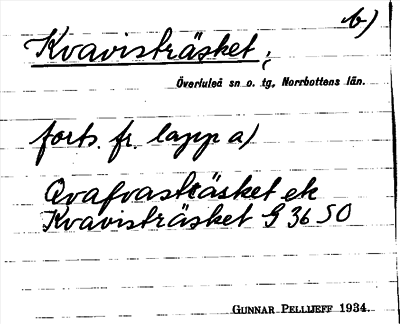 b)
Kvavisträsket;
Överluleå sn o. tg, Norrbottens län.
forts. fr. lapp a)
Qvafvasträsket ek
Kvavisträsket G 36 SO
GUNNAR PELLIJEFF 1934.